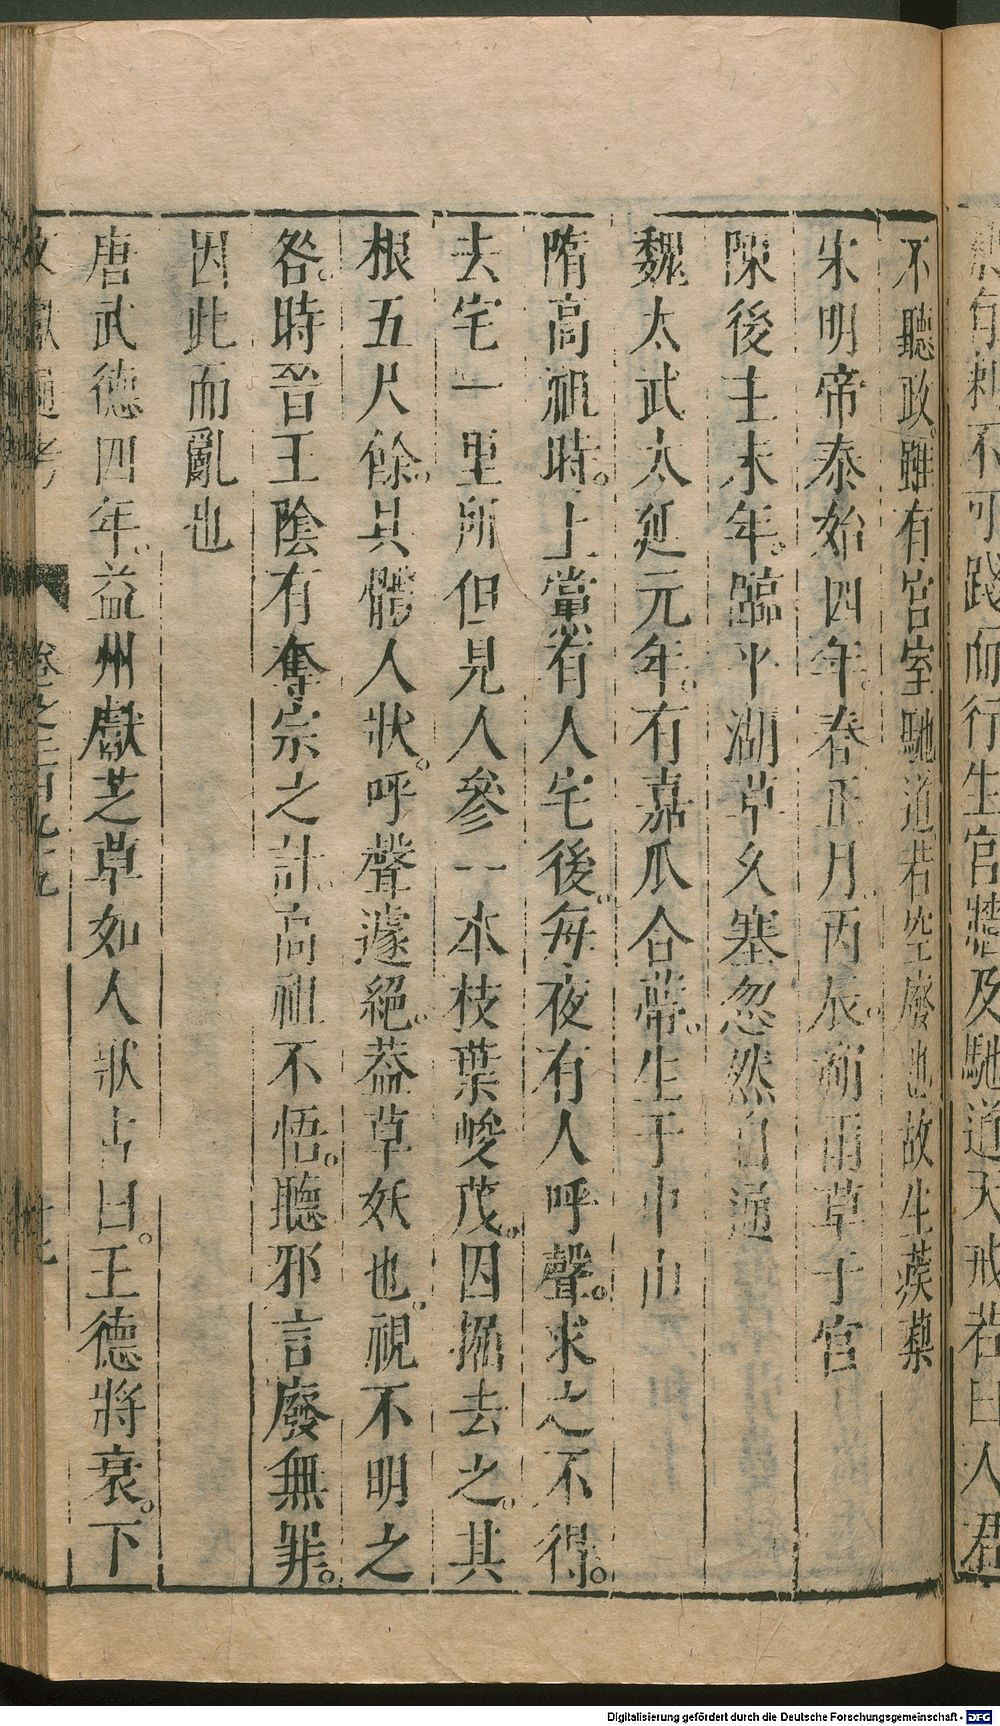 有刺不可踐而行生宮牆及馳道天戒若曰人君
不聽政。雖有宮室馳道若空廢也故生蒺藜
宋明帝泰始四年。春正月。丙辰。朔雨草于宮
陳後主末年。臨平湖草久塞忽然自通
魏太武太延元年。有嘉瓜合蔕。生于中山
隋高祖時。上黨有人宅後。每夜有人呼聲。求之不得。
去宅一里所但見人參一本枝葉峻茂。因掘去之。其
根五尺餘。具體人狀。呼聲遂絕。蓋草妖也。視不明之
咎。時晉王陰有奪宗之計。高祖不悟。聽邪言廢無罪。
因此而亂也
唐武德四年。益州獻芝草如人狀占曰。王德將衰。下
文獻通考 卷之三百九九
Digitalisierung gefördert durch die Deutsche Forschungsgemeinschaft - DFG